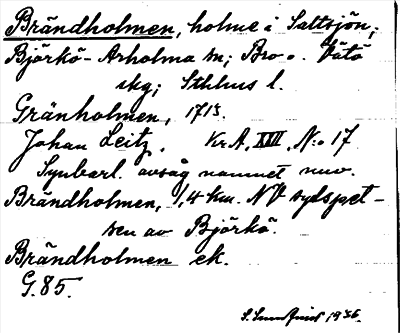 Brändholmen, holme i Saltsjön;
Björkö-Arholma sn; Bro o. Vätö
skg; Sthlms l.
Gränholmen, 1715.
Johan Leitz. Kr. A, XXII, N:o 17
Synbarl. avsåg namnet nuv.
Brändholmen, 1,4 km. NV sydspet-
sen av Björkö.
Brändholmen ek.
G. 85.
S. Lundqvist 1936.